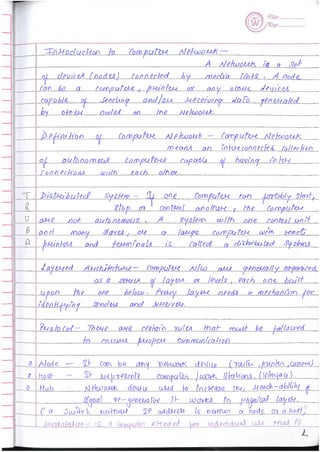 Introduction to Computer Network -
A Network is a set
of devices (nodes) connected by media links. A node
can be a computer, printer or any other devices
capable of sending and/or receiving data generated
by other nodes on the Network.
Definition of Computer Network - Computer Network
means an interconnected collection
of autonomous computers capable of having inter
connections with each other.
Distributed System - If one Computer can forcibly start,
stop or control another, the computers
are not autonomous. A system with one control unit
and many slaves, or a large computer with remote
printers and terminals is called a distributed system.
Layered Architecture - Computer N/w are generally organized
as a series of layers or levels, each one built
upon the one below. Every layer needs a mechanism for
identifying senders and receiver.
Protocol - There are certain rules that must be followed
to ensure proper communication.
Node - It can be any network device (router, printer, camera)
Host - It represent computer/work stations.
Hub - Network device used to increase the reach-ability of
signal re-generator It works in physical layer.
(a Switch without IP address is neither a node or a host)
Workstation - is a computer intended for individual use that is